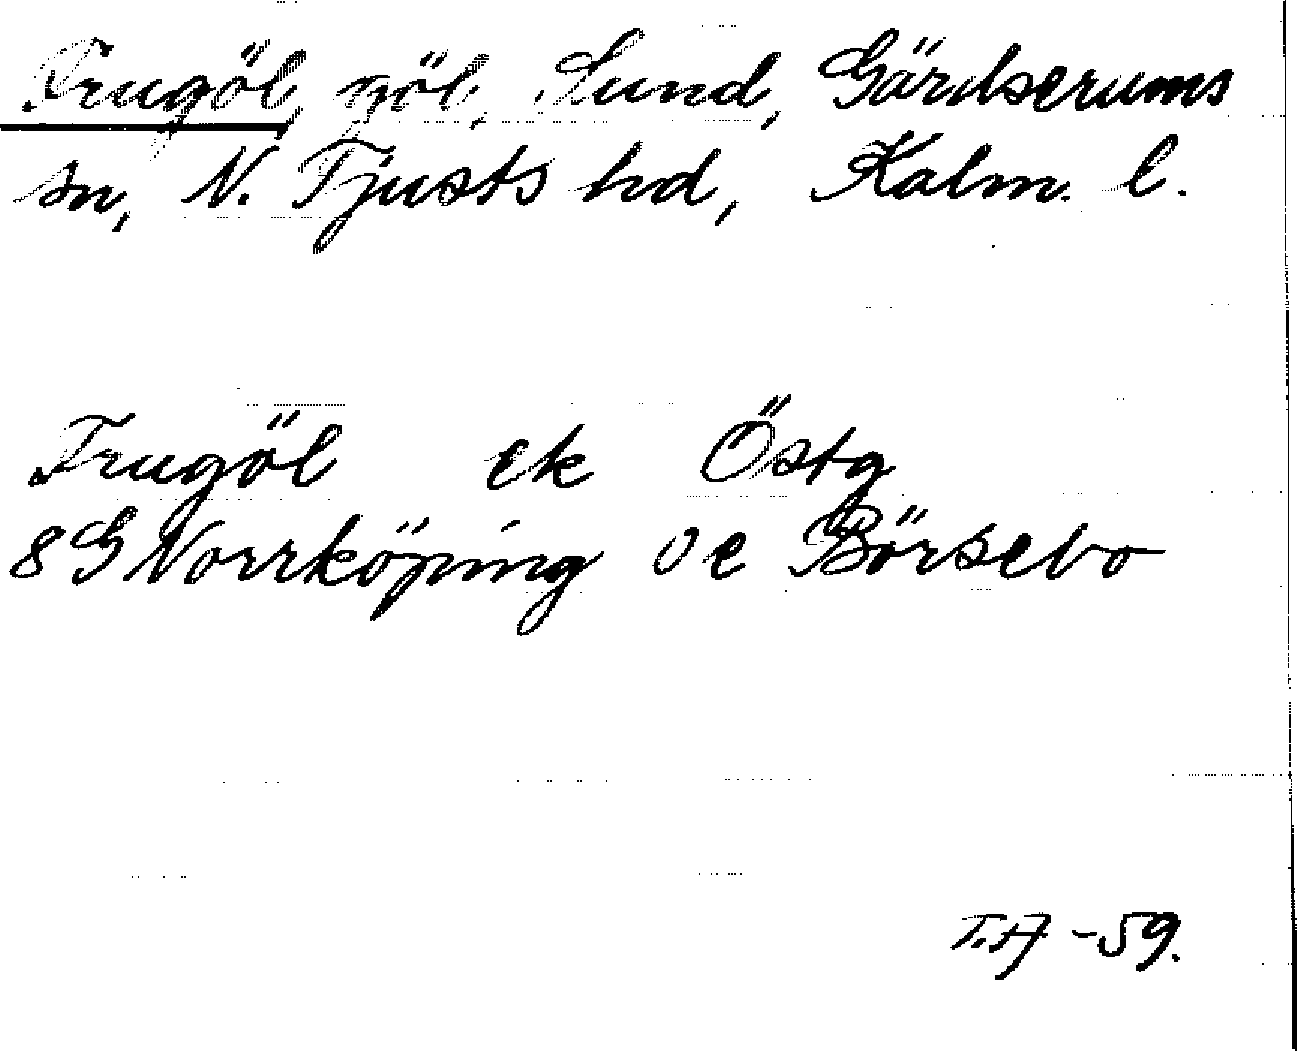 Frugöl, göl, Sund, Gärdserums
sn, N. Tjusts hd, Kalm. l.
Frugöl ek Östg
8G Norrköping 0e Börsebo
T.A -59.